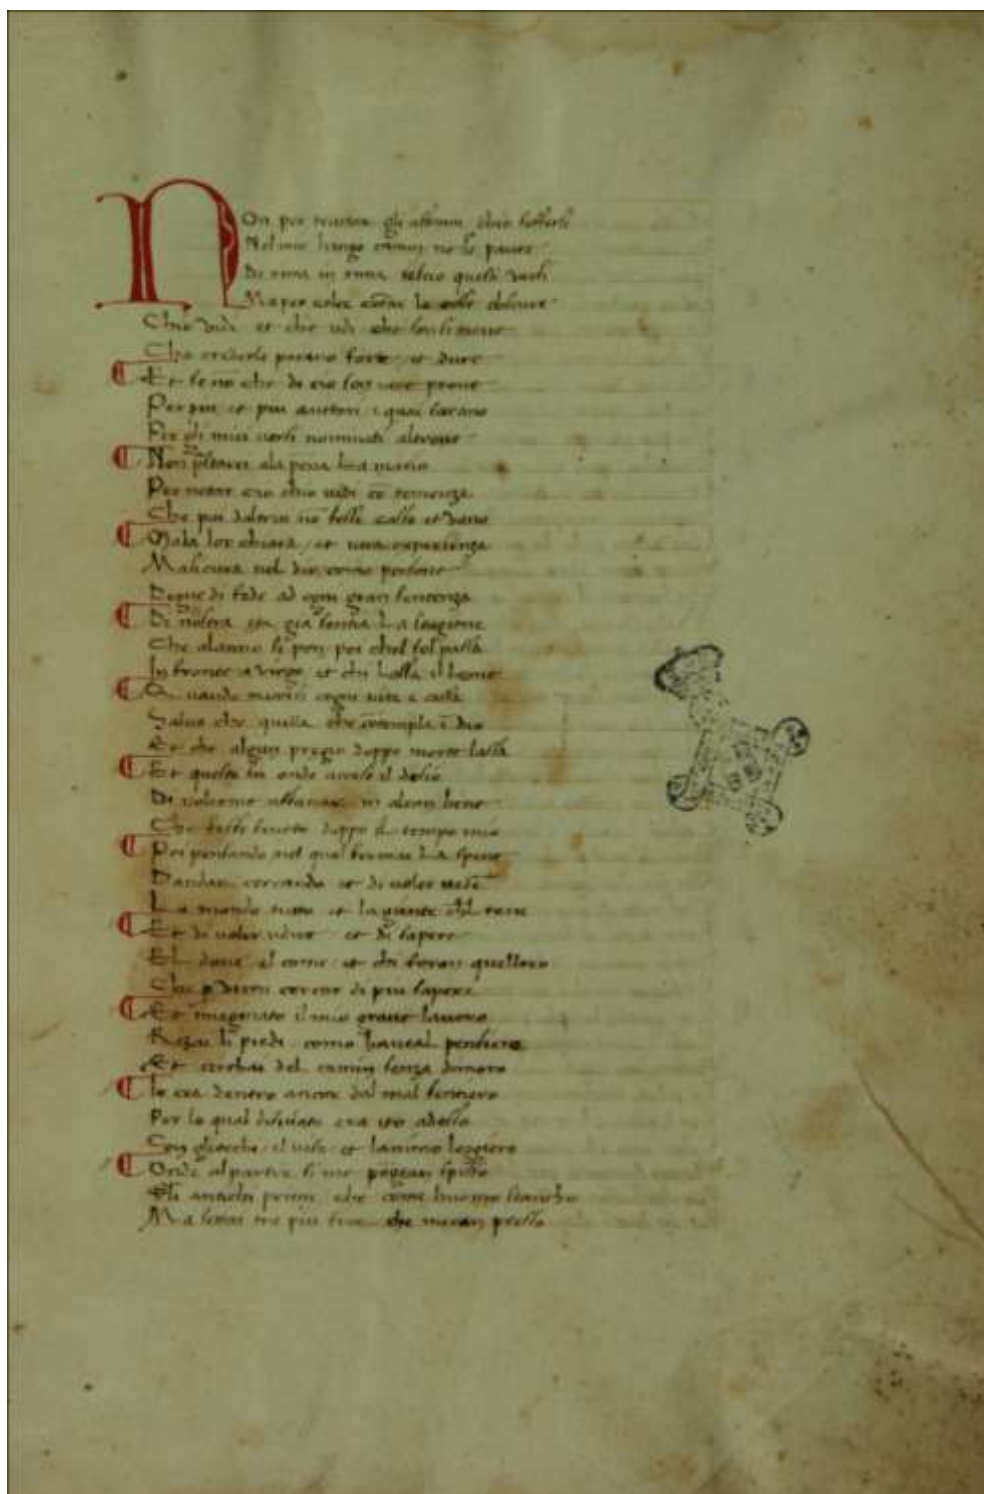 NOn per tractar gli affanni chio soffersi
Nel mio lungo camin ne le paure
Di rima in rima tesso questi versi
Ma per voler contar le cose obscure
Chio vidi et chio udi che son si noue
Cha crederle parano forte et dure
Et se nō che di cio son uere proue
Per piu et piu auctori i quai sarano
Per gli miei uersi nominati altroue
Non presterei ala pena la mano
Per notar cio chio uidi cō temenza
Che poi daltrui nō fosse casso et vano
Mala lor chiara et uera experienza
Masicura nel dir como persone
Degne di fede ad ogni gran sentenza
Di nostra eta gia sentia La stagione
Che alanno si pon poi chel sol passa
In fronte a virgo et chi Lassa il leone
Quando macorsi ogni uita e cassa
Saluo che quella che cōtempla ī dio
Et che algun pregio doppo morte lassa
Et questo fu onde acceso il desio
Di uolerme affanar in alcun bene
Che fosse fructo doppo il tempo mio
Poi pensando nel qual fermai La spene
Dandar cercando et di uoler uedē
Lo mondo tutto et la giente chel tene
Et di uoler udire et di sapere
El doue el come et chi foran quelloro
Che per virtu cercor di piu sapere
Et imaginato il mio graue lauoro
Rizai li piedi como haueal pensiero
Et cerchai del camin senza dimoro
Io era dentro ancora dal mal sentiero
Per lo qual disuiato era ito adesso
Con gliocchi il uiso et lanimo leggiero
Onde al partir si me pogean spesso
Gli antichi pruni che como huomo stancho
Ma lentai tre piu fiate che meran presso